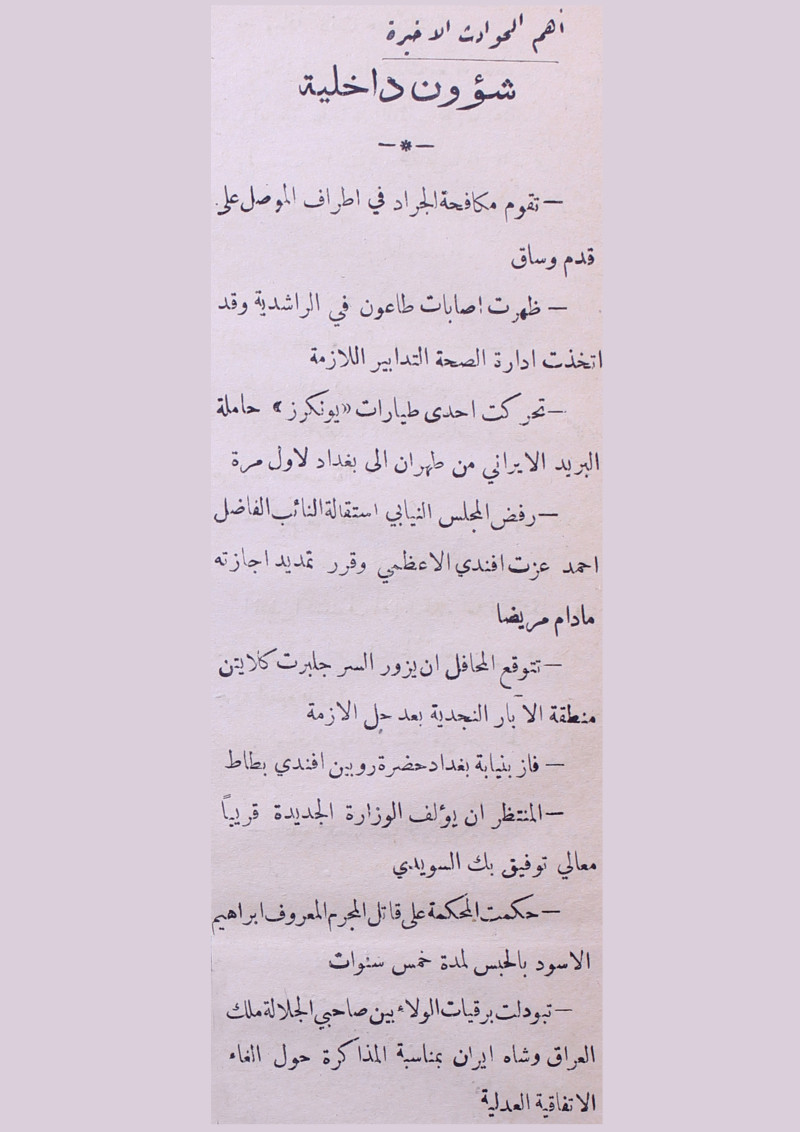 أهم الحوادث الاخيرة
شؤون داخلية
— تقوم مكافحة الجراد في اطراف الموصل على
قدم وساق
— ظهرت اصابات طاعون في الراشدية وقد
اتخذت ادارة الصحة التدابير اللازمة
— تحركت احدى طيارات «يونكرز» حاملة
البريد الايراني من طهران الى بغداد لاول مرة
— رفض المجلس النيابي استقالة النائب الفاضل
احمد عزت افندي الاعظمي وقرر تمديد اجازته
مادام مريضا
— تتوقع المحافل ان يزور السر جلبرت كلايتن
منطقة الآبار النجدية بعد حل الازمة
— فاز بنيابة بغداد حضرة روبين افندي بطاط
— المنتظر ان يؤلف الوزارة الجديدة قريباً
معالي توفيق بك السويدي
— حكمت المحكمة على قاتل المجرم المعروف ابراهيم
الاسود بالحبس لمدة خمس سنوات
— تبودلت برقيات الولاء بين صاحبي الجلالة ملك
العراق وشاه ايران بمناسبة المذاكرة حول الغاء
الاتفاقية العدلية